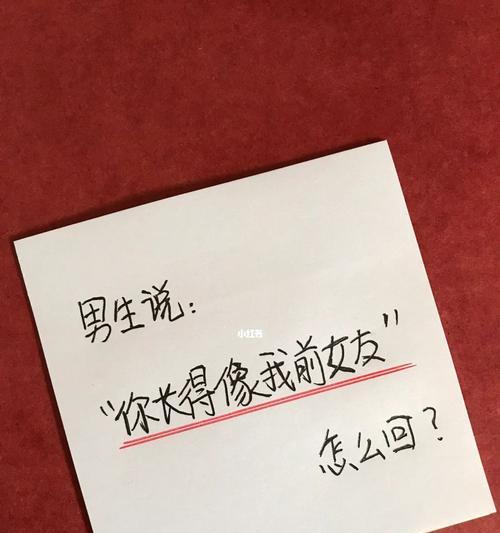 男生说：
小红书
“你长得像我前女友”
怎么回？